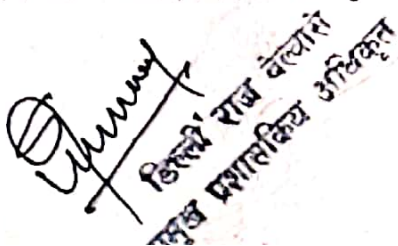 डिल्ली राज पेल्यारी
प्रमुख प्रशासकिय अधिकृत